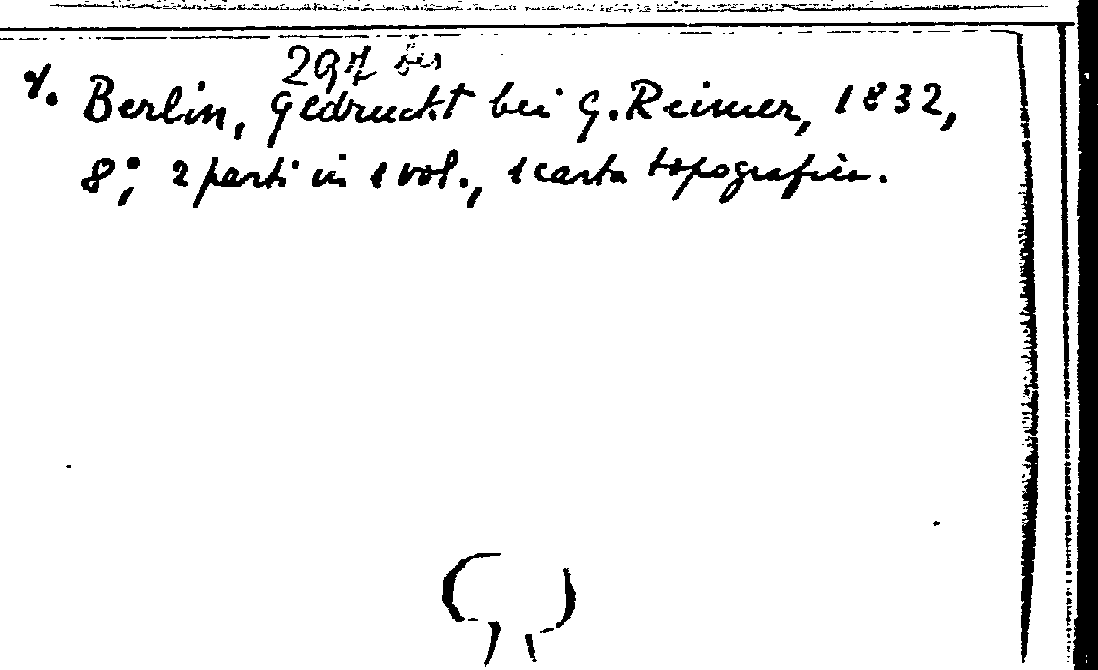 297 bis
%. Berlin, gedruckt bei G. Reimer, 1832,
8°; 2 parti in 1 vol., 1 carta topografica.